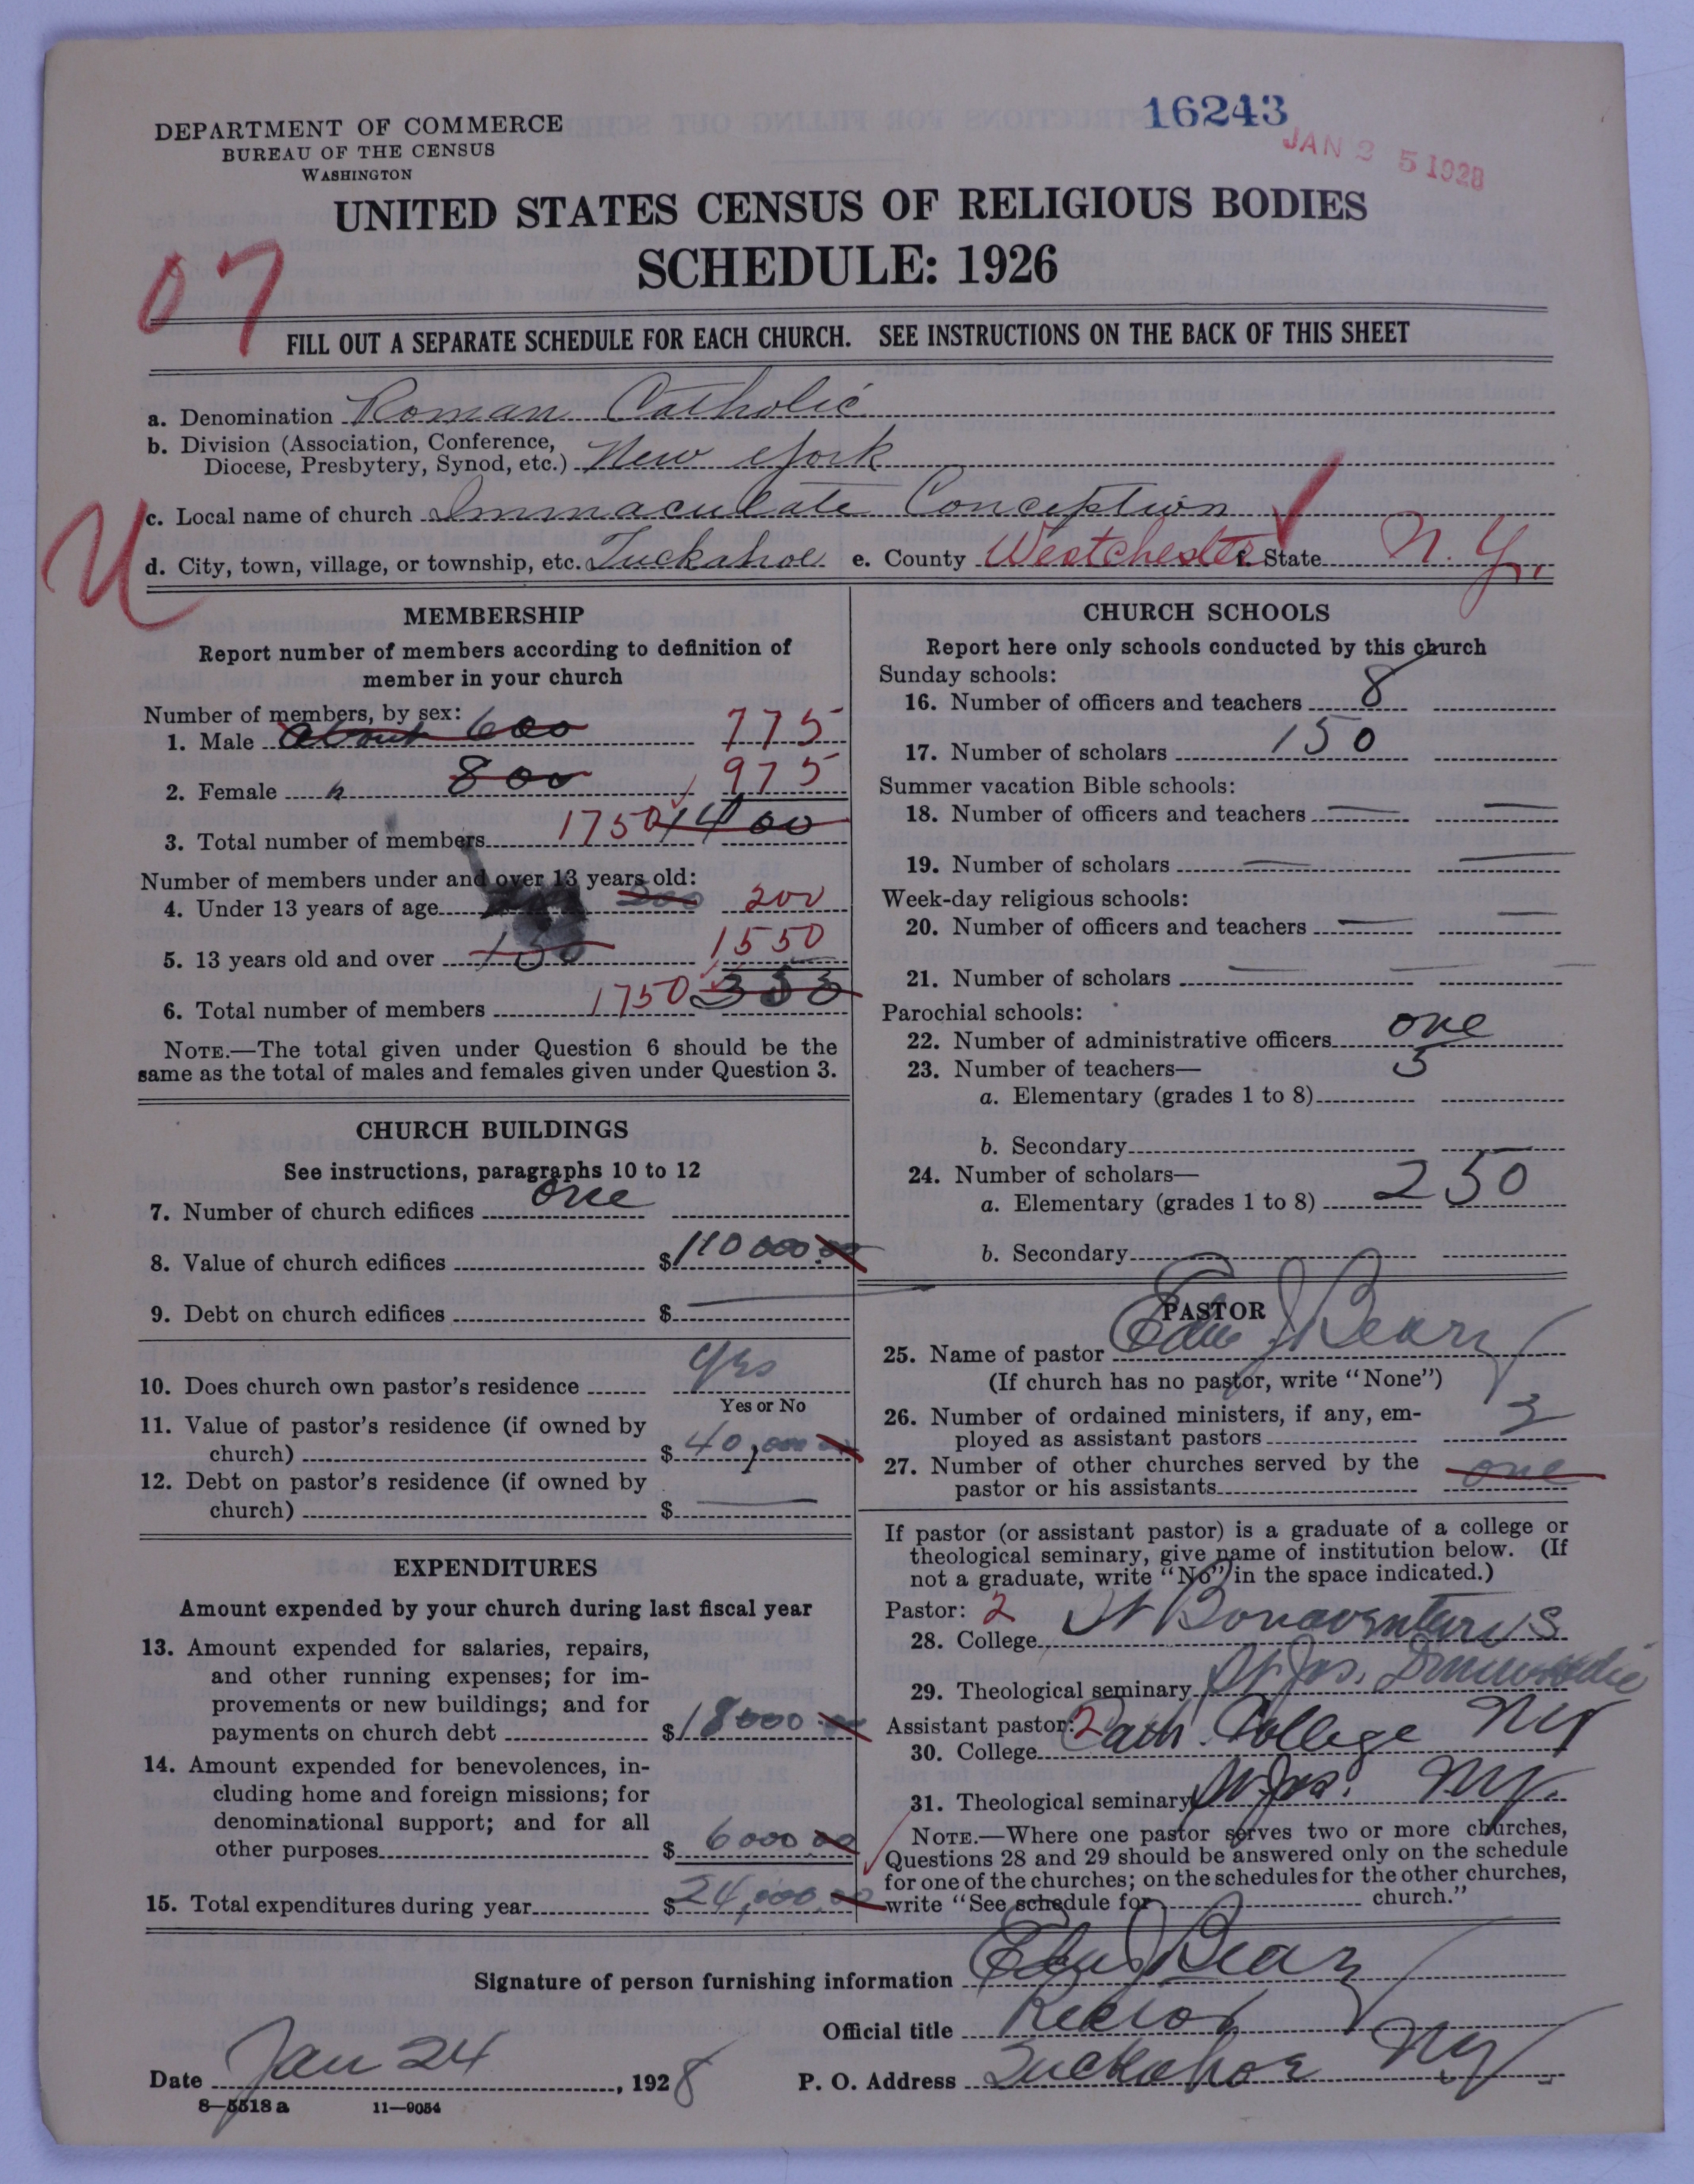 16243
JAN 25 1928
DEPARTMENT OF COMMERCE
BUREAU OF THE CENSUS
WASHINGTON
UNITED STATES CENSUS OF RELIGIOUS BODIES
SCHEDULE: 1926
07
FILL OUT A SEPARATE SCHEDULE FOR EACH CHURCH. SEE INSTRUCTIONS ON THE BACK OF THIS SHEET
a. Denomination Roman Catholic
b. Division (Association, Conference,
Diocese, Presbytery, Synod, etc.) New York
U
c. Local name of church Immaculate Conception
d. City, town, village, or township, etc. Tuckahoe e. County Westchester f. State N.Y.
MEMBERSHIP
Report number of members according to definition of
member in your church
Number of members, by sex:
1. Male about 600 775
2. Female " 800 975
3. Total number of members 1750 1400
Number of members under and over 13 years old:
4. Under 13 years of age 200 200
5. 13 years old and over 150 1550
6. Total number of members 1750 353
NOTE.—The total given under Question 6 should be the
same as the total of males and females given under Question 3.
CHURCH BUILDINGS
See instructions, paragraphs 10 to 12
7. Number of church edifices one
8. Value of church edifices $110000.00
9. Debt on church edifices $ —
10. Does church own pastor's residence yes
Yes or No
11. Value of pastor's residence (if owned by
church) $40,000.00
12. Debt on pastor's residence (if owned by
church) $ —
EXPENDITURES
Amount expended by your church during last fiscal year
13. Amount expended for salaries, repairs,
and other running expenses; for im-
provements or new buildings; and for
payments on church debt $18000.00
14. Amount expended for benevolences, in-
cluding home and foreign missions; for
denominational support; and for all
other purposes $6000.00
15. Total expenditures during year $24,000.00
CHURCH SCHOOLS
Report here only schools conducted by this church
Sunday schools:
16. Number of officers and teachers 8
17. Number of scholars 150
Summer vacation Bible schools:
18. Number of officers and teachers — —
19. Number of scholars — —
Week-day religious schools:
20. Number of officers and teachers — —
21. Number of scholars — —
Parochial schools:
22. Number of administrative officers one
23. Number of teachers— 5
a. Elementary (grades 1 to 8)
b. Secondary
24. Number of scholars—
a. Elementary (grades 1 to 8) 250
b. Secondary
PASTOR
25. Name of pastor Edw J Beary
(If church has no pastor, write "None")
26. Number of ordained ministers, if any, em-
ployed as assistant pastors 3
27. Number of other churches served by the
pastor or his assistants one
If pastor (or assistant pastor) is a graduate of a college or
theological seminary, give name of institution below. (If
not a graduate, write "No" in the space indicated.)
Pastor: 2
28. College St Bonaventures
29. Theological seminary St Jos. Dunwoodie
Assistant pastor: 2
30. College Cath. College NY
31. Theological seminary St Jos. NY.
NOTE.—Where one pastor serves two or more churches,
Questions 28 and 29 should be answered only on the schedule
for one of the churches; on the schedules for the other churches,
write "See schedule for church."
Signature of person furnishing information Edw J Beary
Official title Rector
Date Jan 24, 1928 P. O. Address Tuckahoe NY
8—5518a 11—9054